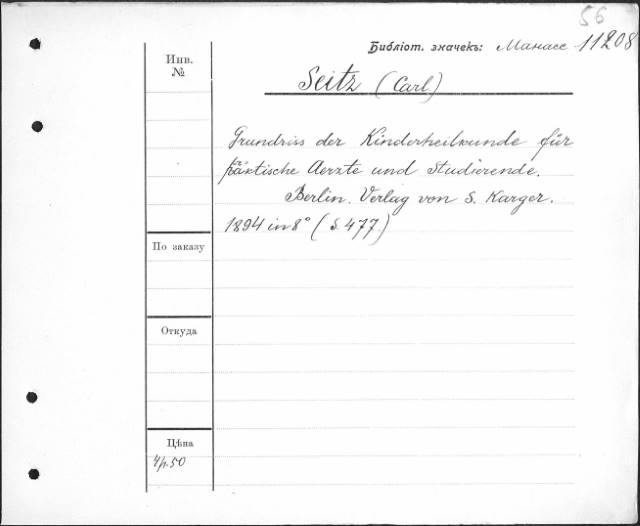 56
Библіот. значекъ: Манасс 11208
Инв.
№
Seitz (Carl)
Grundriss der Kinderheilkunde für
präktische Aerzte und Studierende.
Berlin. Verlag von S. Karger.
1894 in 8° (S. 477.)
По заказу
Откуда
Цѣна
4р.50